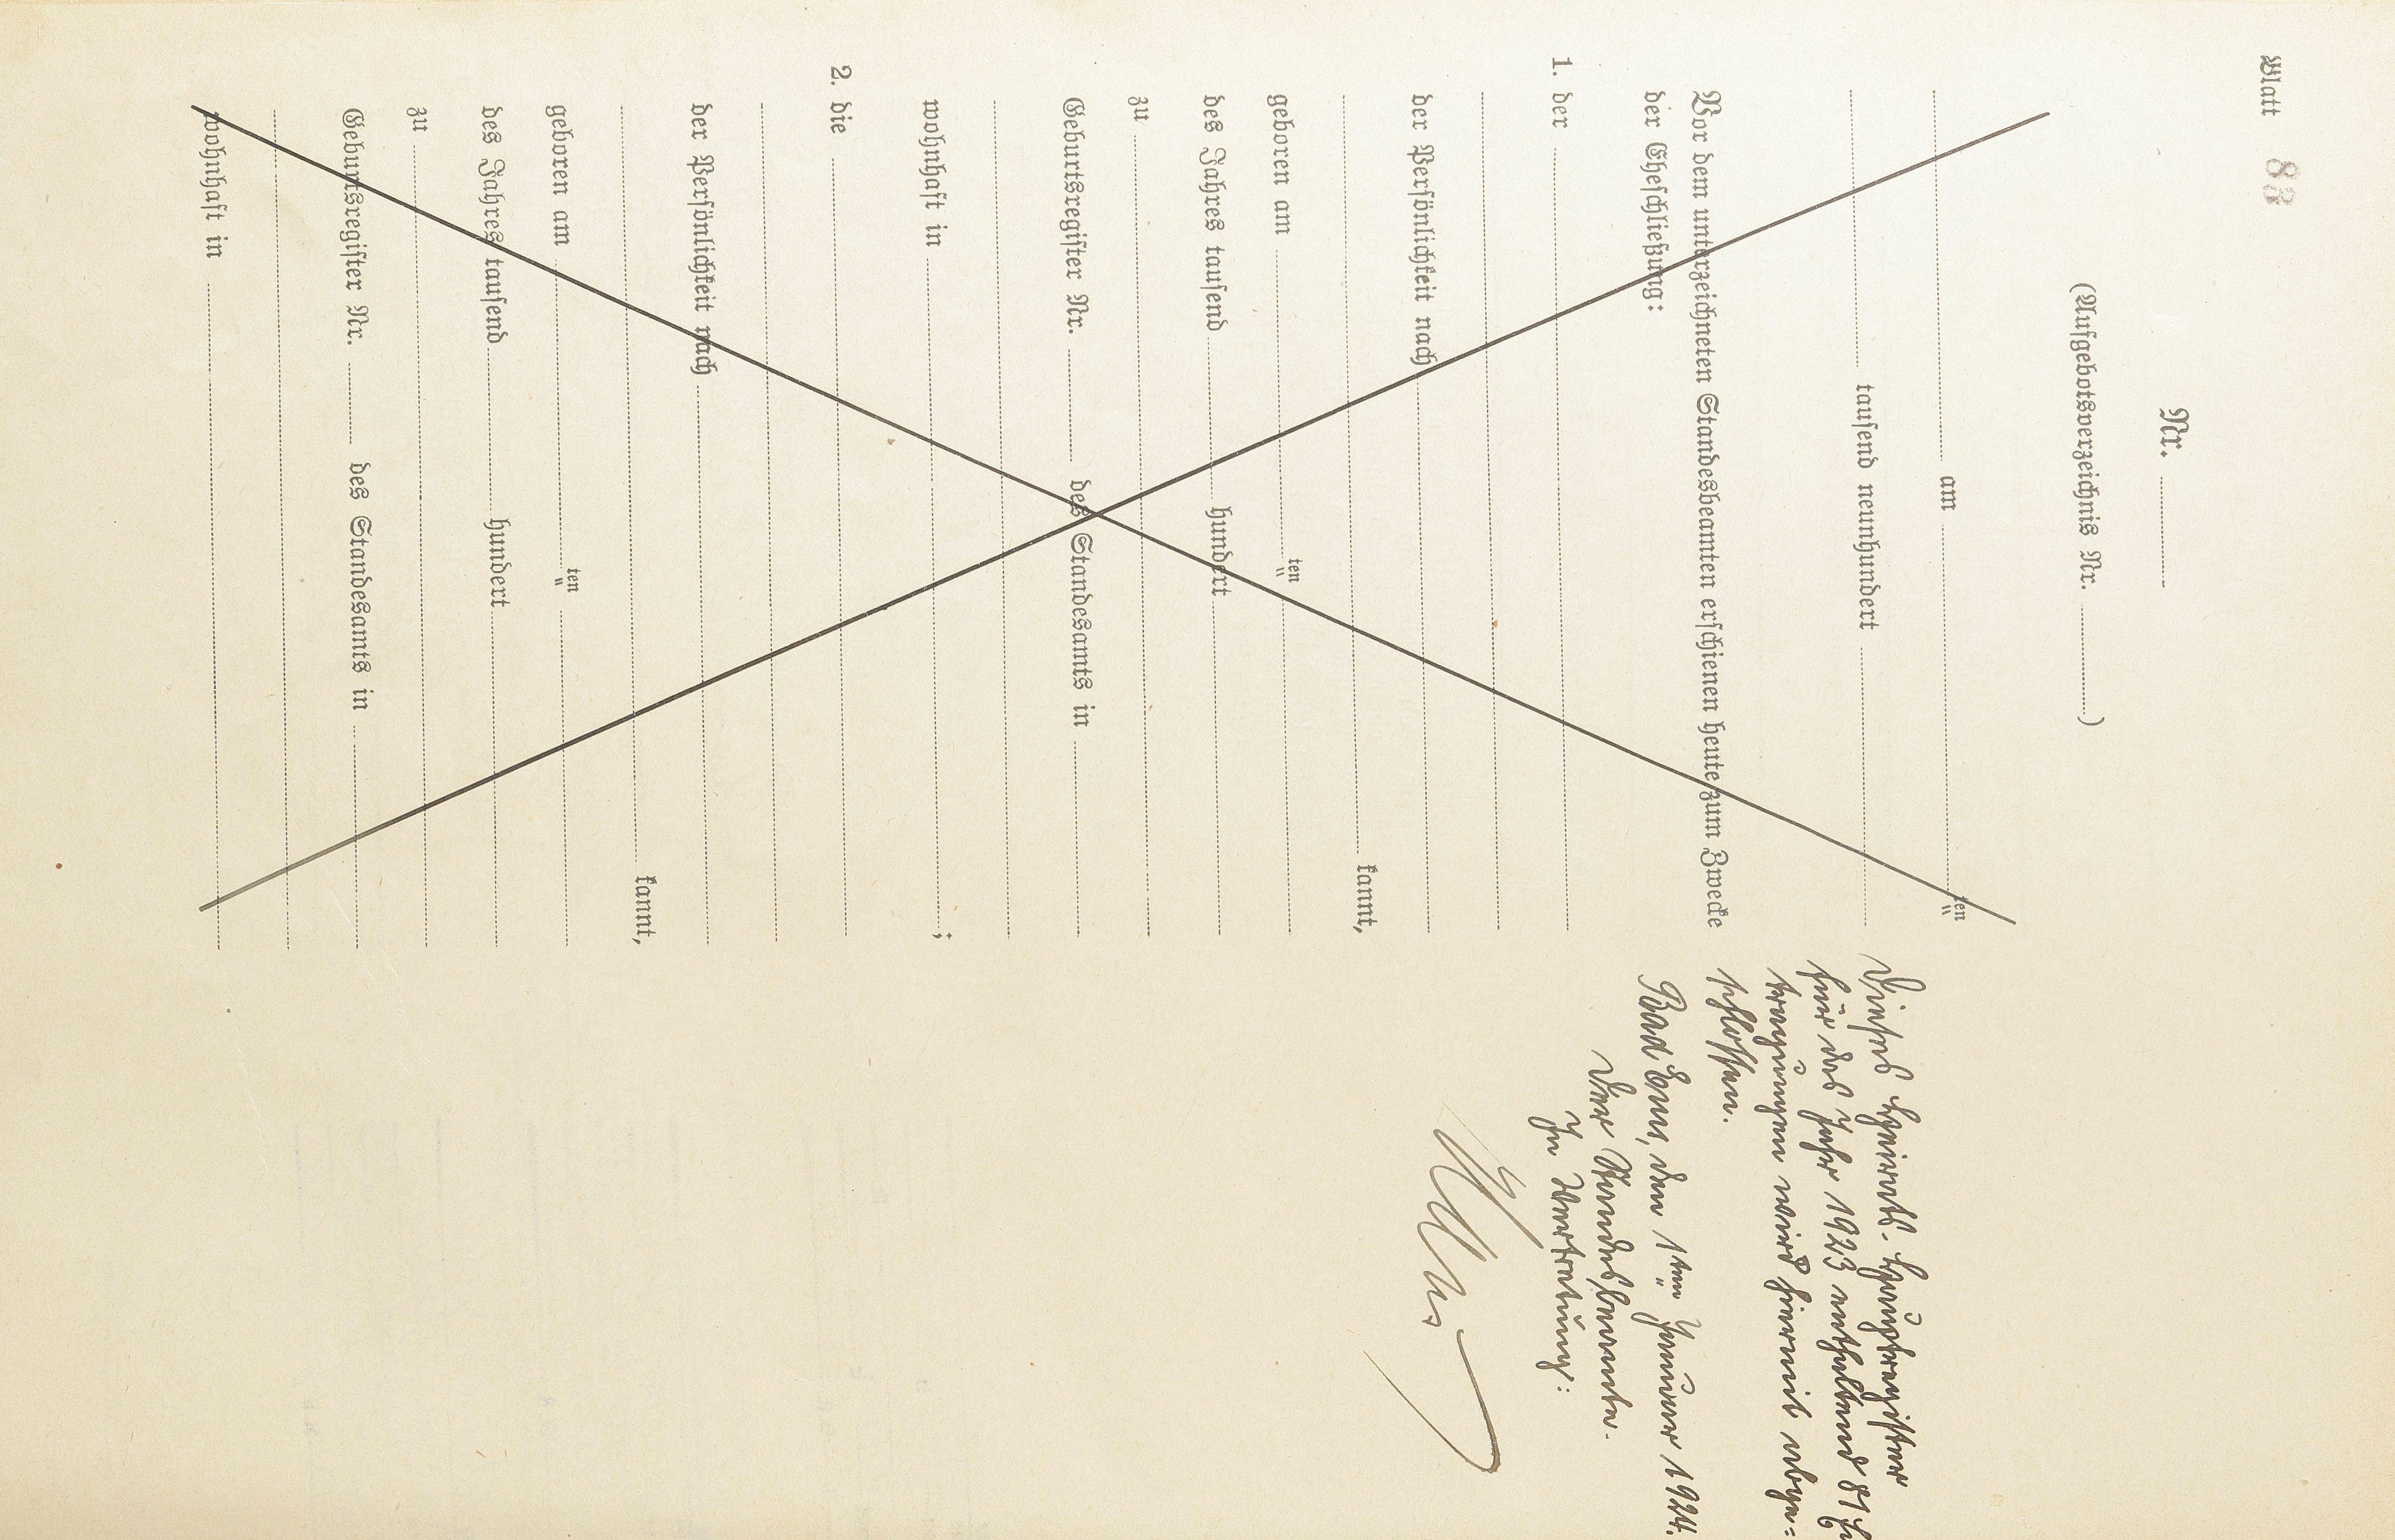 Blatt 83
Nr.
(Aufgebotsverzeichnis Nr. )
am ten
tausend neunhundert
Vor dem unterzeichneten Standesbeamten erschienen heute zum Zwecke
der Eheschließung:
1. der
der Persönlichkeit nach
kannt,
geboren am ten
des Jahres tausend hundert
zu
Geburtsregister Nr. des Standesamts in
wohnhaft in ;
2. die
der Persönlichkeit nach
kannt,
geboren am ten
des Jahres tausend hundert
zu
Geburtsregister Nr. des Standesamts in
wohnhaft in
Dieses Heirats-Hauptregister
für das Jahr 1923 enthaltend 81
tragungen wird hiermit abge=
schlossen.
Bad Ems, den 1ten Januar 1924.
Der Standesbeamte.
In Vertretung: